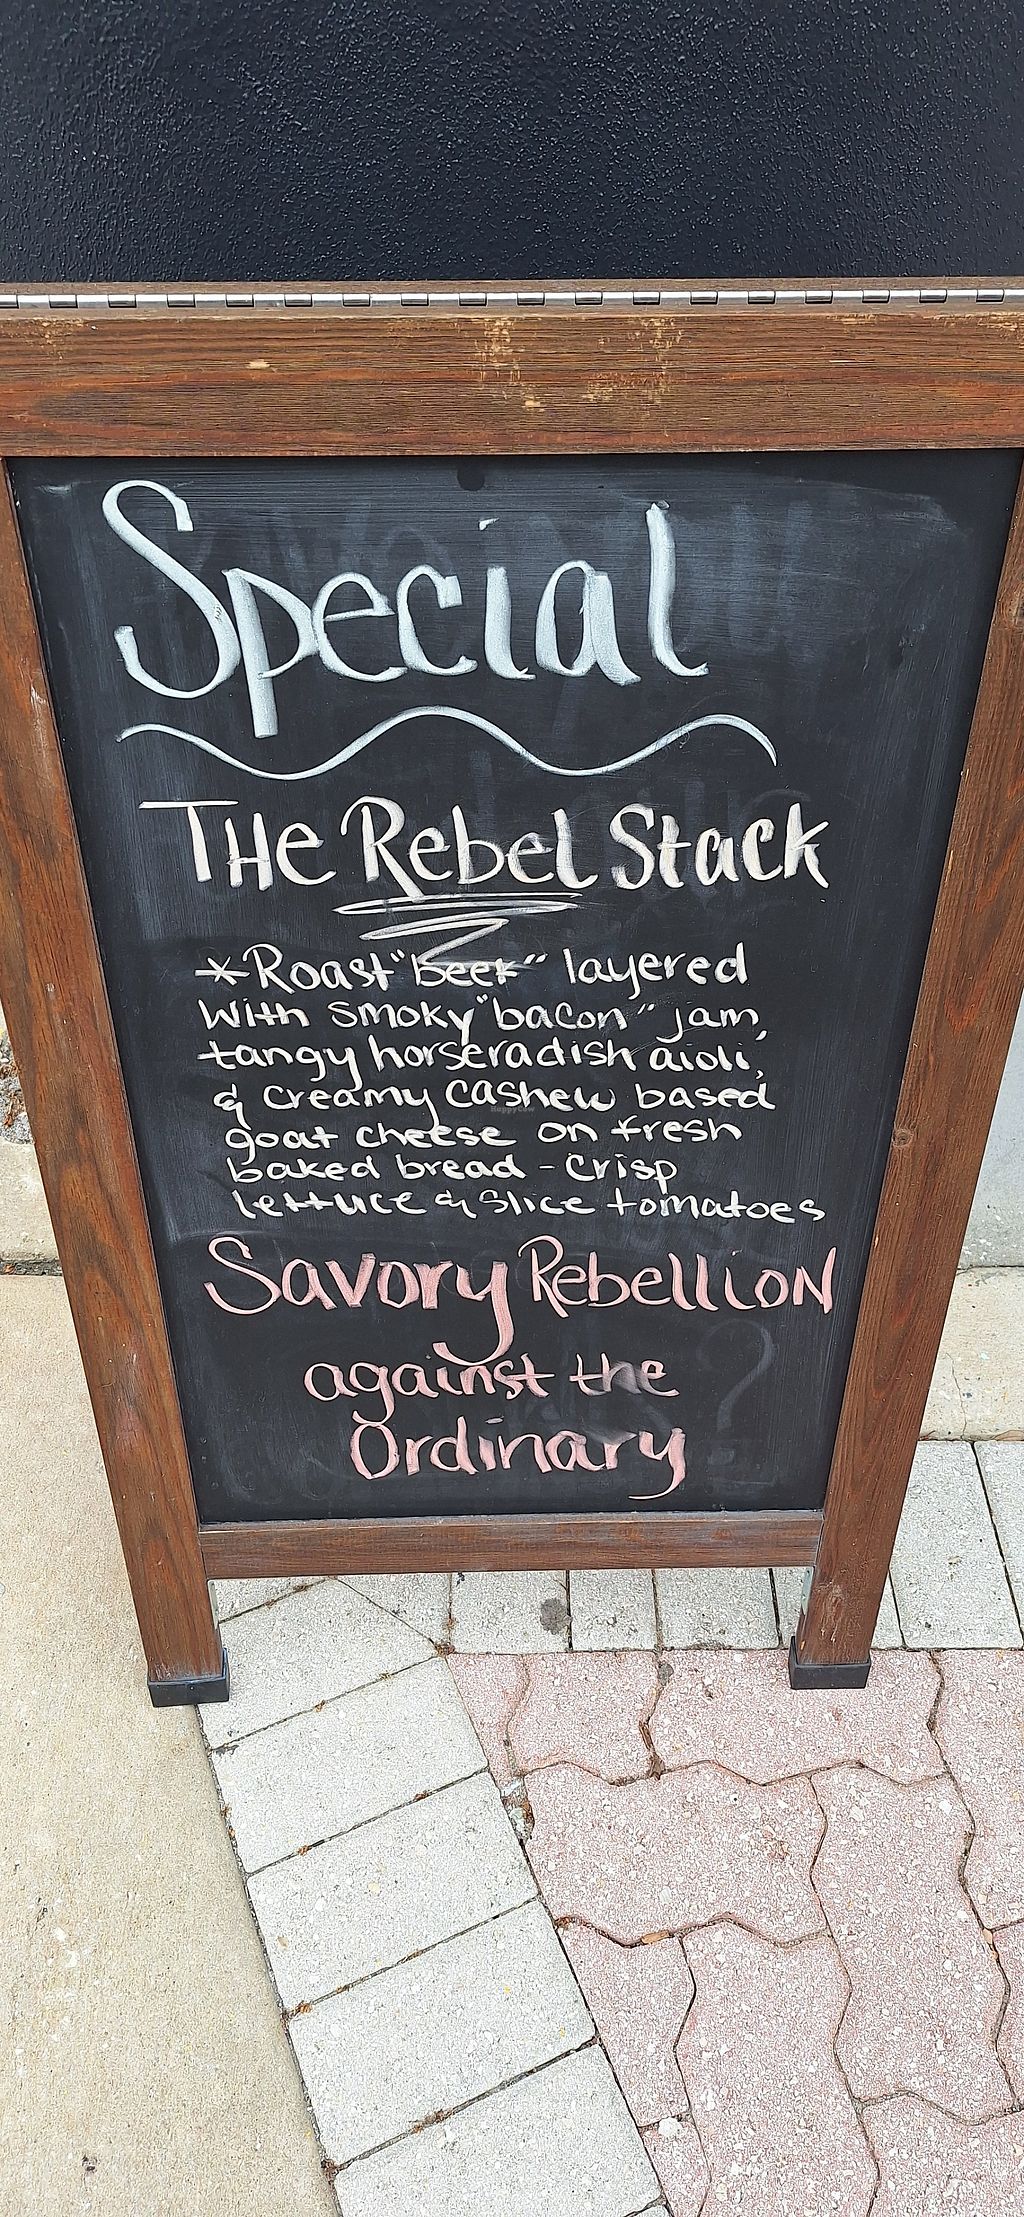 Special
THe Rebel Stack
*Roast "beef" layered
with smoky "bacon" jam,
tangy horseradish aioli,
& creamy cashew based
HappyCow
goat cheese on fresh
baked bread - crisp
lettuce & slice tomatoes
Savory RebellioN
against the
Ordinary